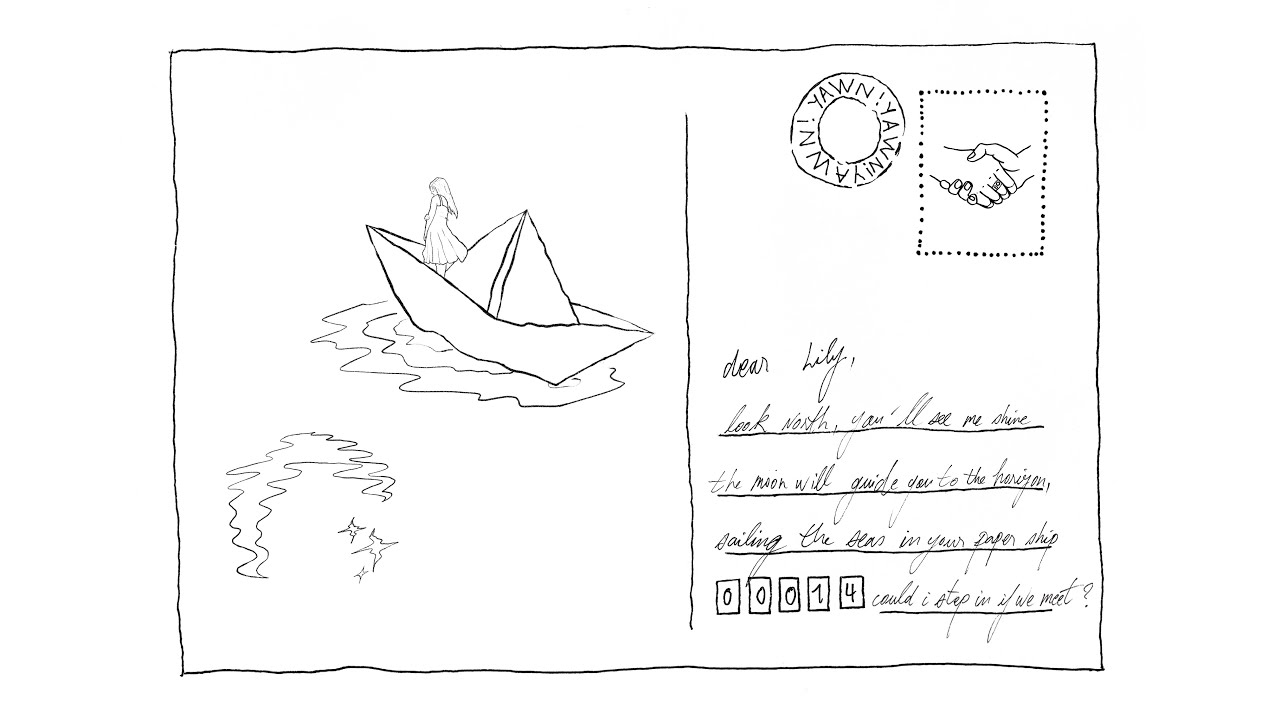 YAWN!YAWN!YAWN!YAWN!
dear Lily,
look North, you'll see me shine
the moon will guide you to the horizon,
sailing the seas in your paper ship
00014 could i stop in if we meet?